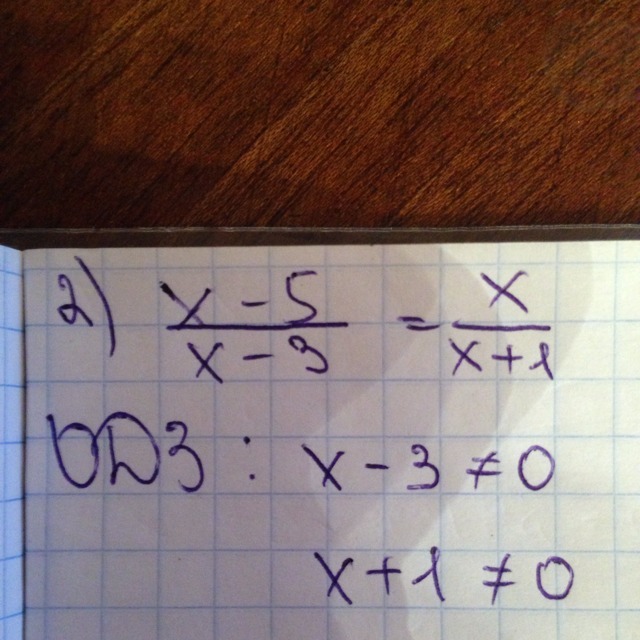 2) x - 5 / x - 3 = x / x + 1
ОДЗ : x - 3 ≠ 0
x + 1 ≠ 0